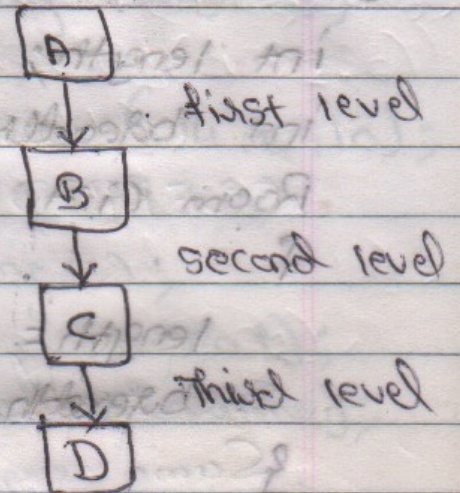 A
first level
B
second level
C
Third level
D